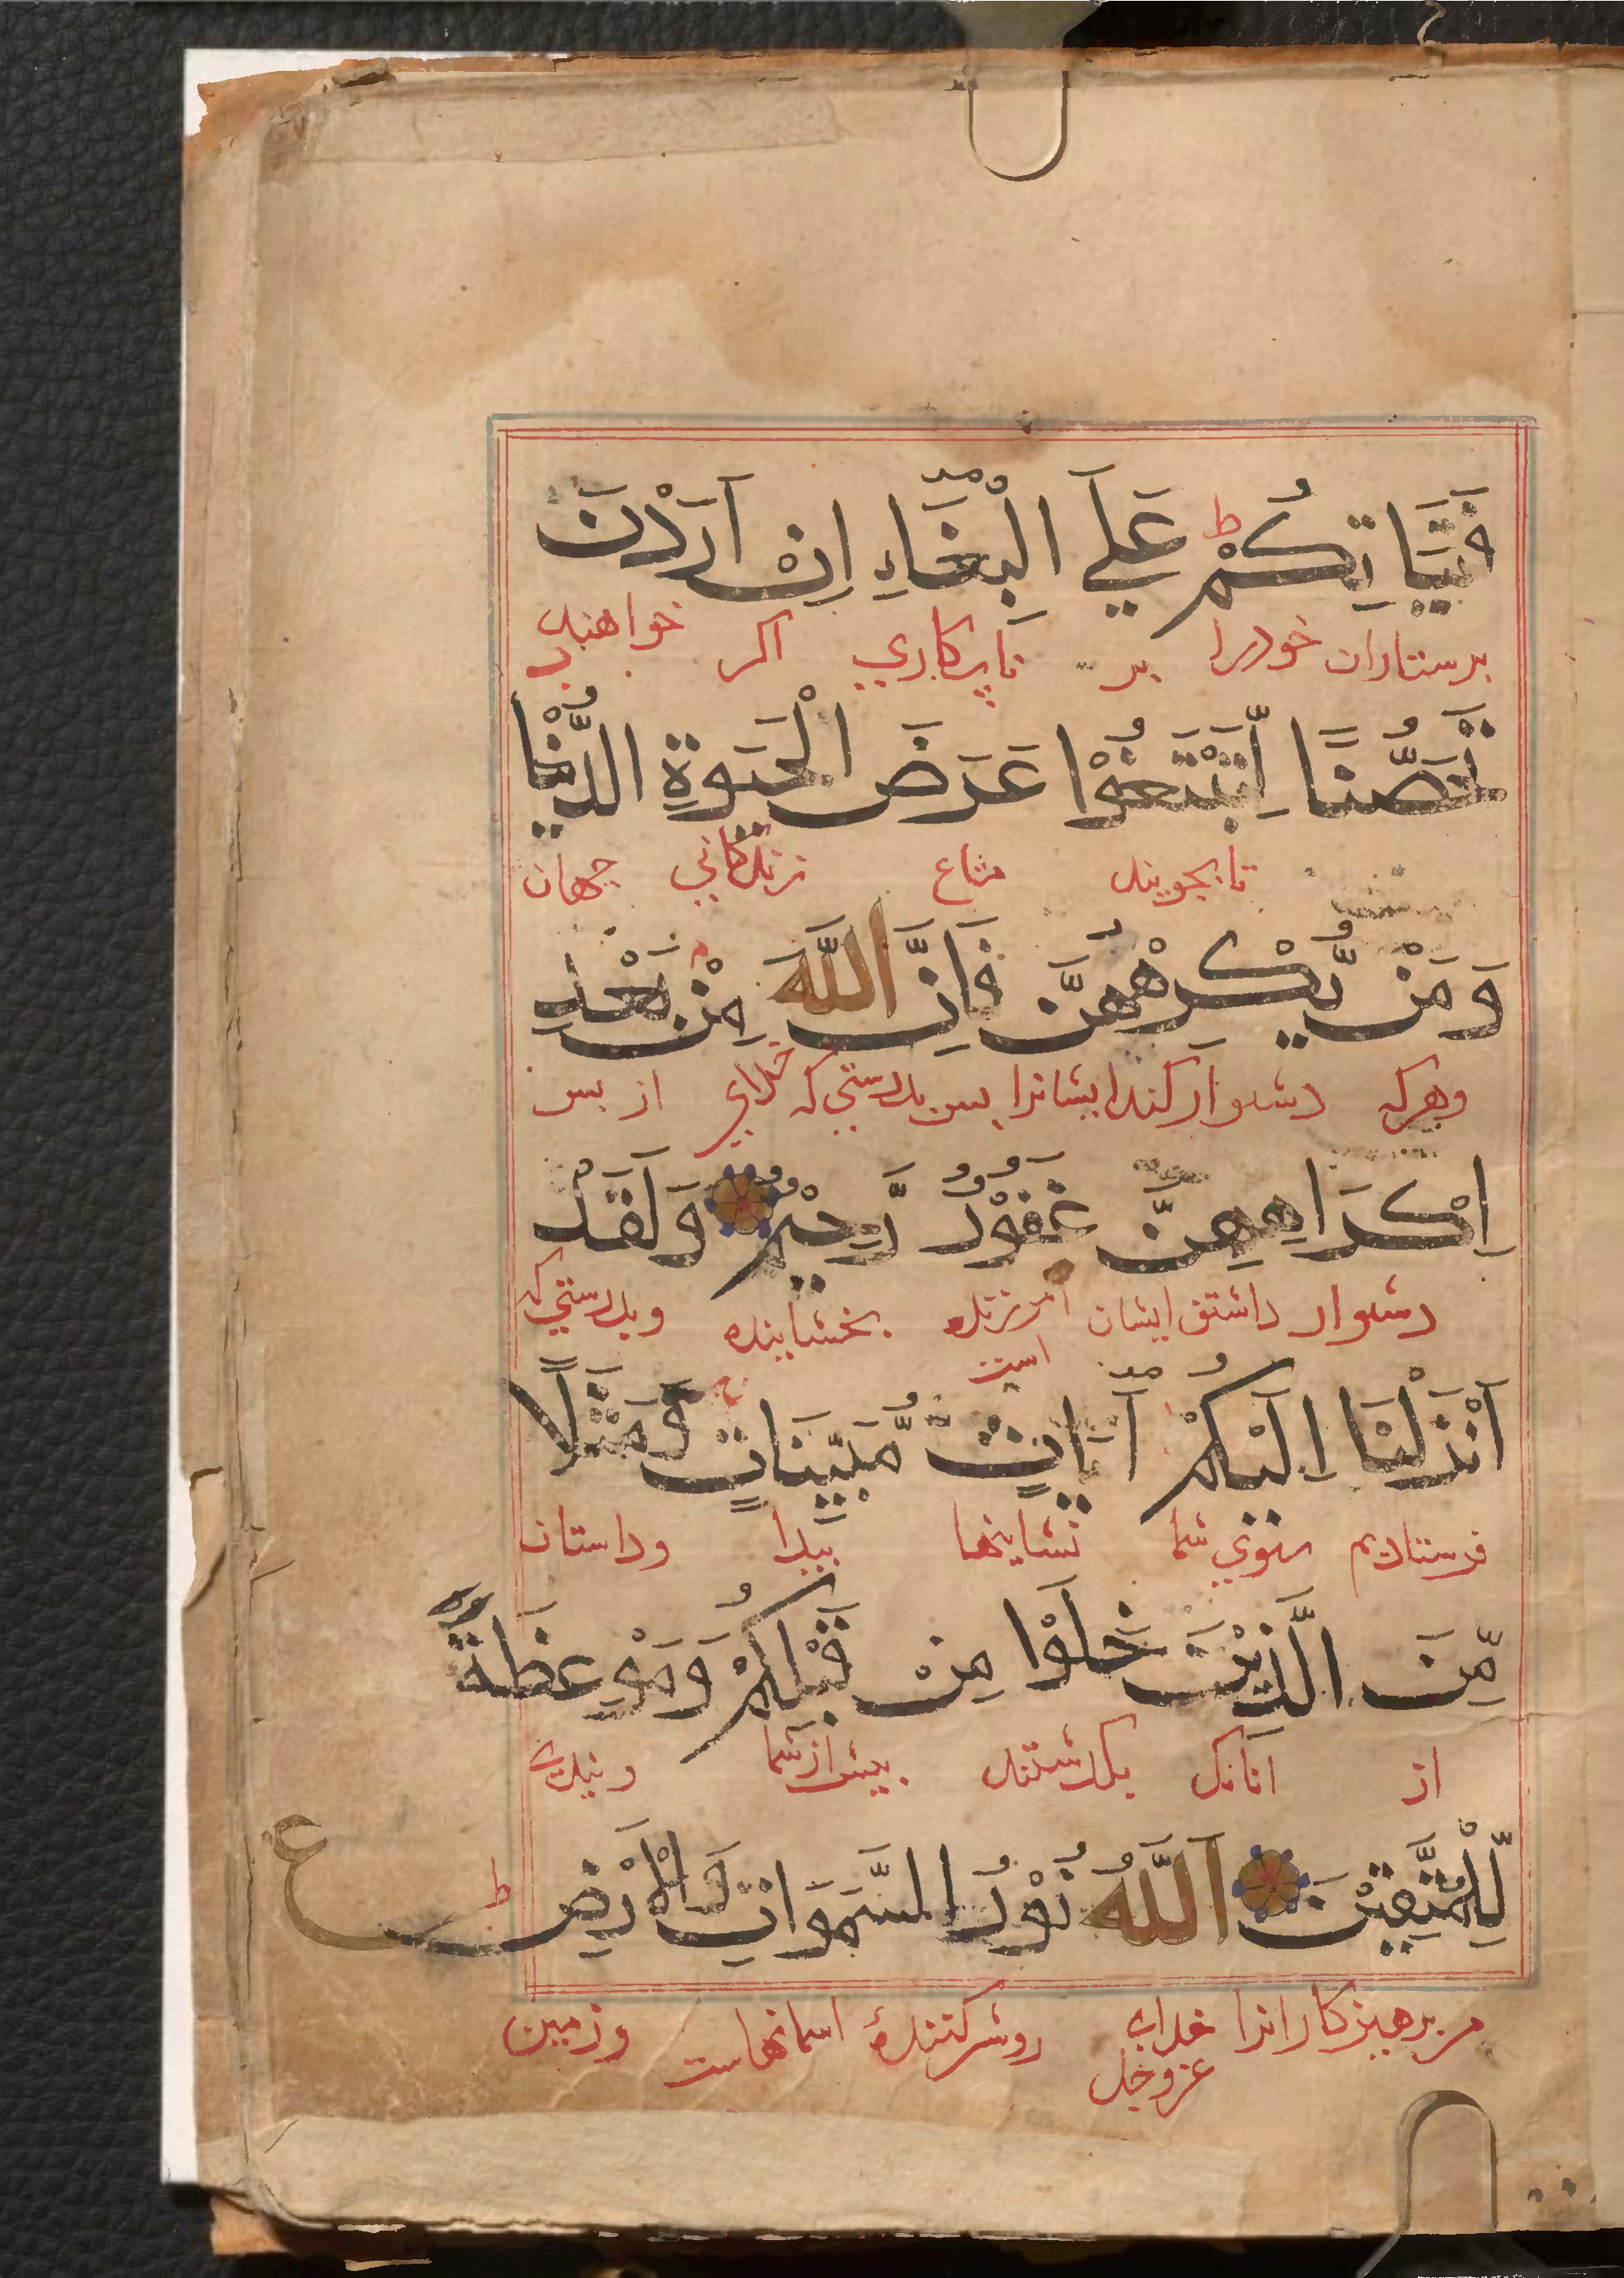 فَتَيَاتِكُمْ عَلَي الْبِغَاءِ اِنْ اَرَدْنَ
برستاران خودرا بر ناپرکاري اکر خواهند
تَحَصُّنًا لِّتَبْتَغُوْا عَرَضَ الْحَيٰوةِ الدُّنْيَا
تا بجويند متاع زندکاني جهان
وَمَنْ يُّكْرِهْهُّنَّ فَاِنَّ اللّٰهَ مِنْ بَعْدِ
وهرکه دشوار کند ايشانرا پس بدرستي که خداي از پس
اِكْرَاهِهِنَّ غَفُوْرٌ رَّحِيْمٌ وَلَقَدْ
دشوار داشتن ايشان امرزنده است بخشاينده وبدرستي که
اَنْزَلْنَا اِلَيْكُمْ اٰيَاتٍ مُّبَيِّنَاتٍ وَّمَثَلًا
فرستاديم بسوي شما نشاينها پيدا وداستان
مِّنَ الَّذِيْنَ خَلَوْا مِنْ قَبْلِكُمْ وَمَوْعِظَةً
از انانک بکذشتند پيش از شما وپندي
لِّلْمُتَّقِيْنَ اَللّٰهُ نُوْرُ السَّمَوَاتِ وَالْاَرْضِ ع
مر پرهيزکارانرا خداي عزوجل روشن کنندۀ اسمانهاست وزمين